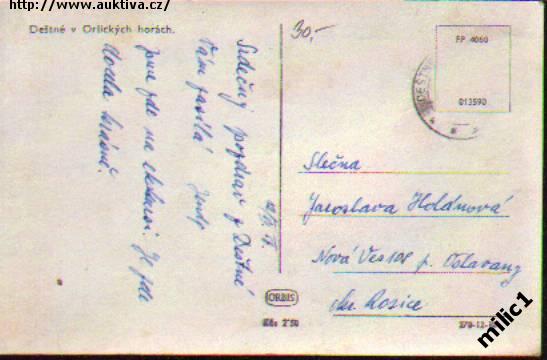 http://www.auktiva.cz/
Deštné v Orlických horách.
30,-
FP 4060
013590
DEŠTN
Srdečný pozdrav z Deštné
Vám zasílá
jsme zde na exkursi. Je zde
docela krásně.
Slečna
Jaroslava Holánová
Nová Ves 108 p. Oslavany
okr. Rosice
ORBIS
Kčs 2'50
milic1